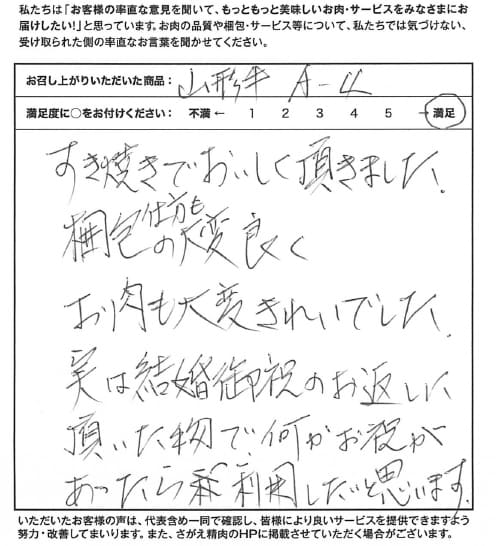 私たちは「お客様の率直な意見を聞いて、もっともっと美味しいお肉・サービスをみなさまにお
届けしたい!」と思っています。お肉の品質や梱包・サービス等について、私たちでは気づけない、
受け取られた側の率直なお言葉を聞かせてください。
お召し上がりいただいた商品： 山形牛 A-4
満足度に○をお付けください： 不満 ← 1 2 3 4 5 → 満足
すき焼きでおいしく頂きました。
梱包の仕方も大変良く
お肉も大変きれいでした。
実は結婚御祝のお返しに
頂いた物で、何かお祝が
あったら是非利用したいと思います。
いただいたお客様の声は、代表含め一同で確認し、皆様により良いサービスを提供できますよう
努力・改善してまいります。また、さがえ精肉のHPに掲載させていただく場合がございます。